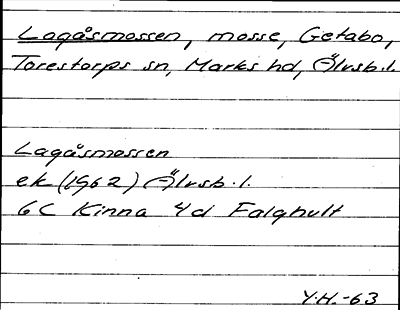 Lagåsmossen, mosse, Getabo,
Torestorps sn, Marks hd, Älvsb.l.
Lagåsmossen
ek (1962) Älvsb.l.
6C Kinna 4d Falghult
Y.H.-63